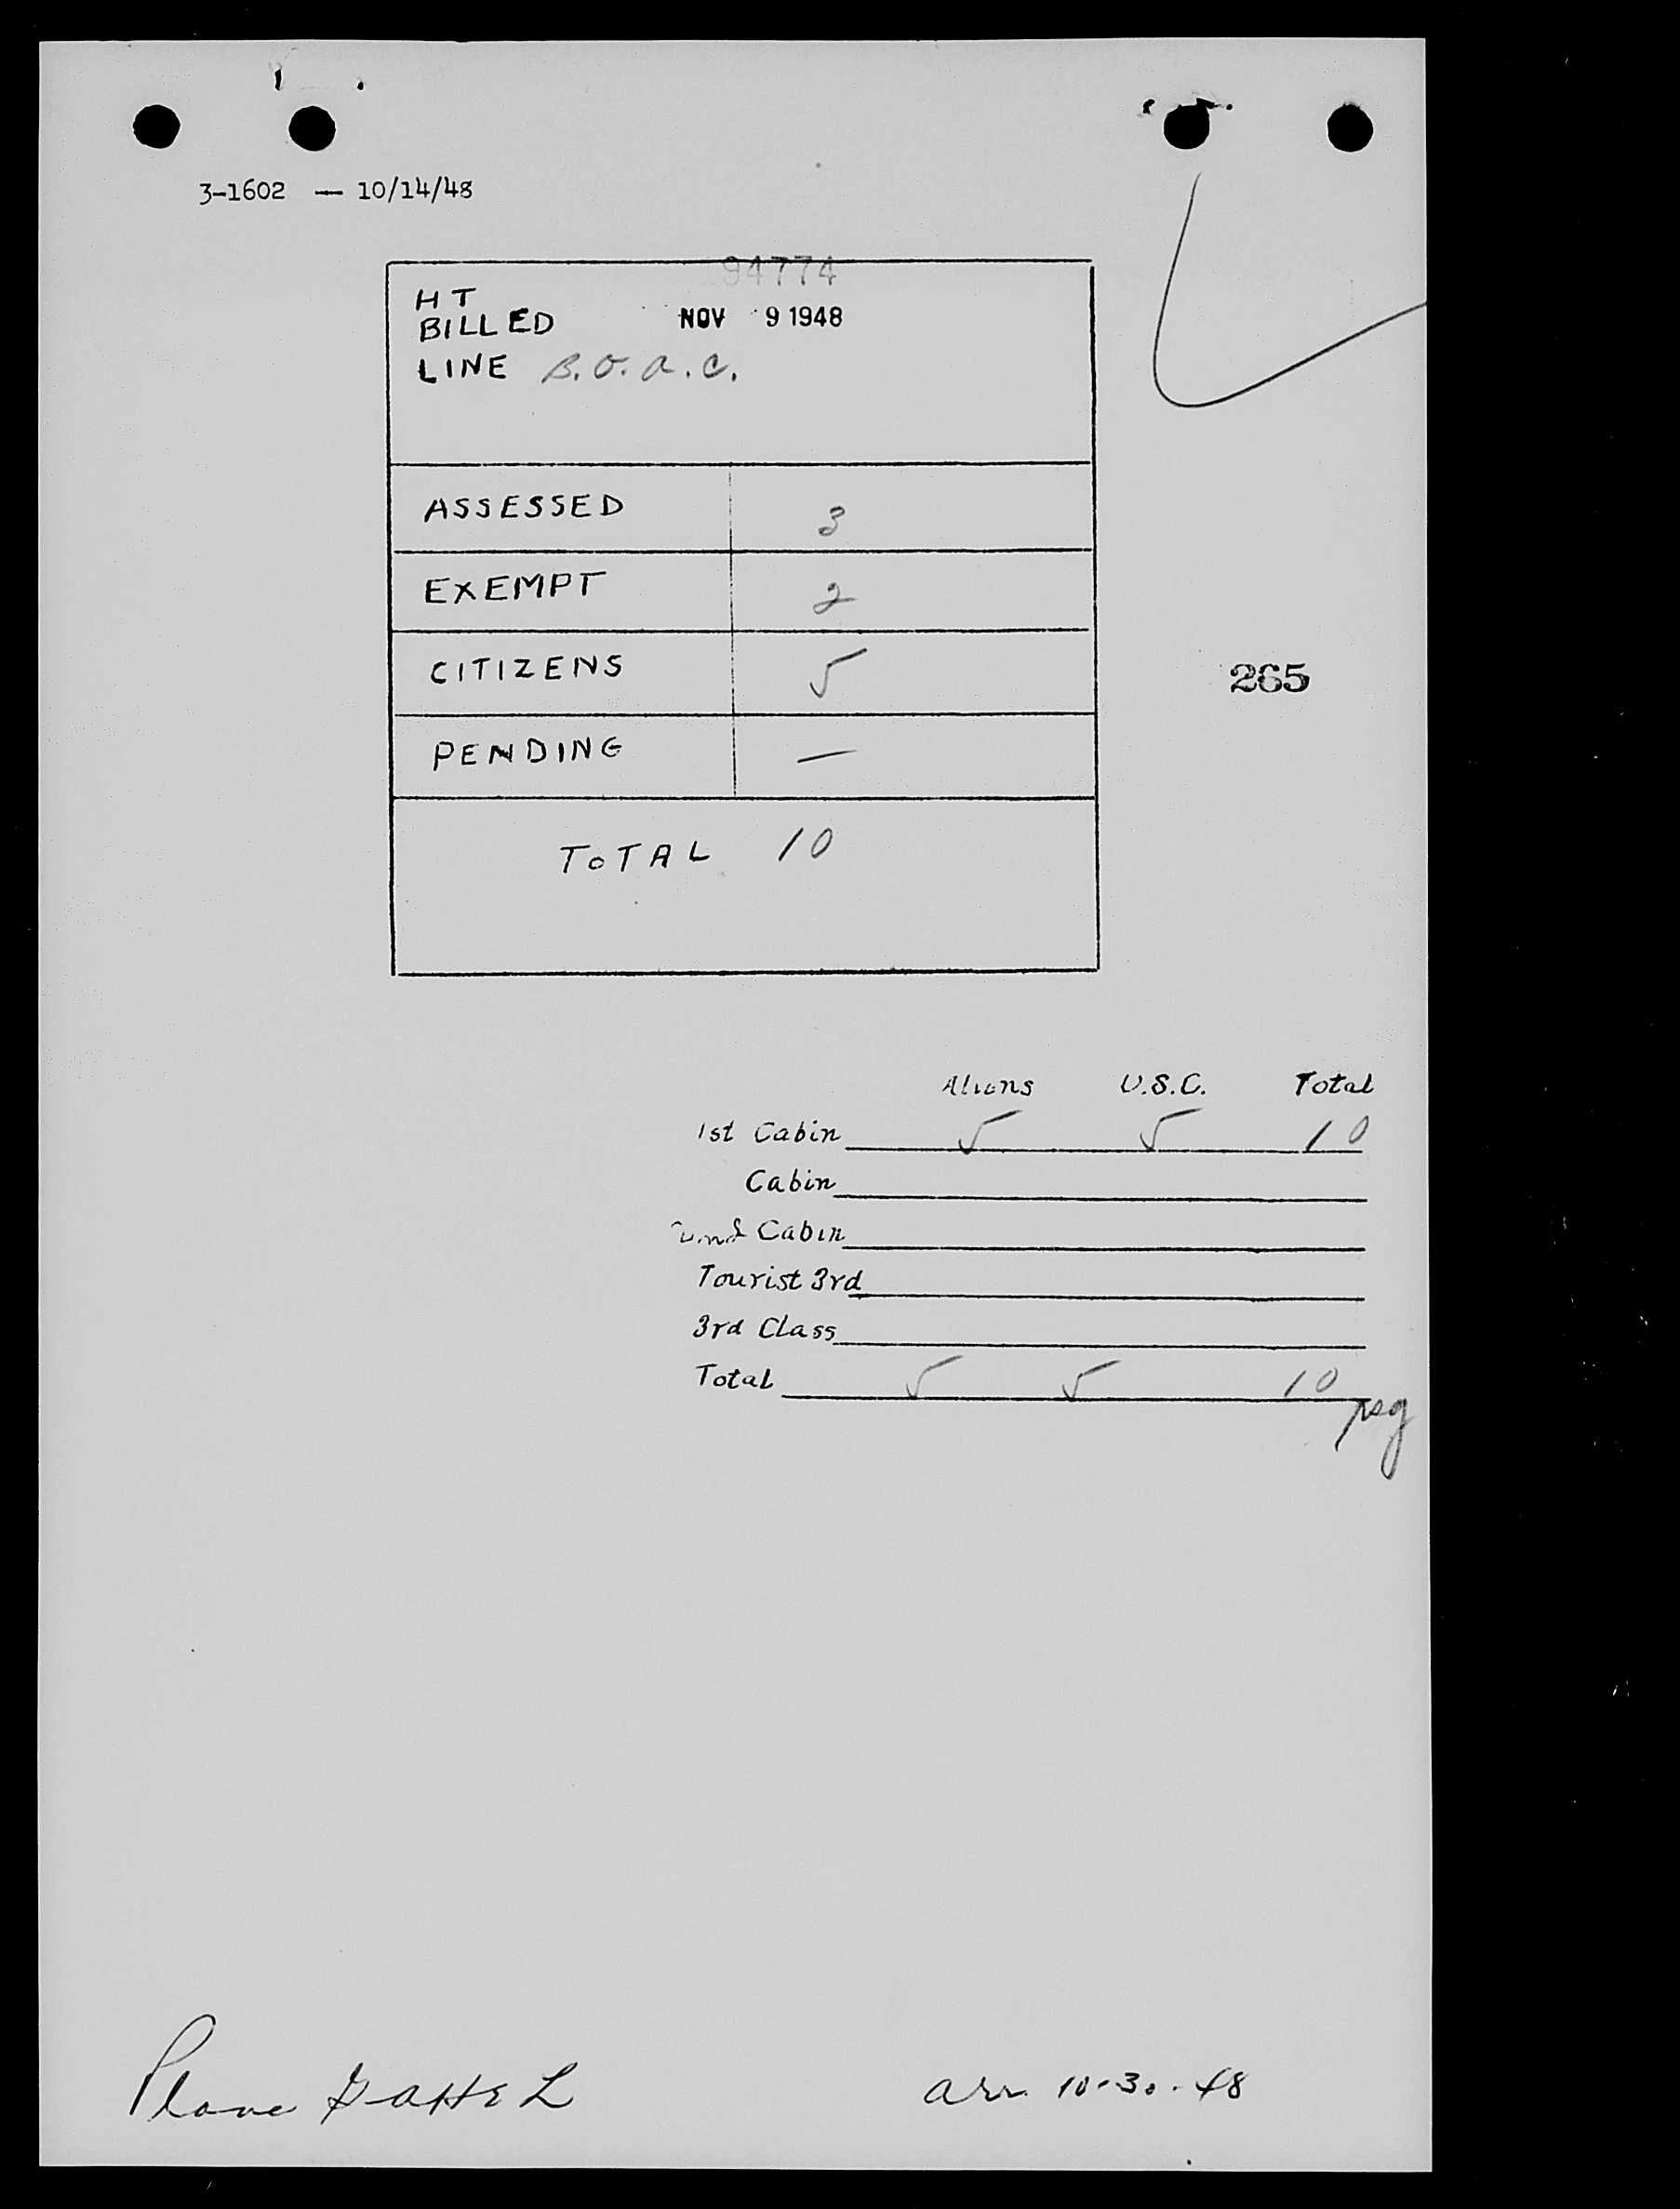 3-1602 — 10/14/48
94774
HT
BILLED NOV 9 1948
LINE B.O.A.C.
ASSESSED 3
EXEMPT 2
CITIZENS 5
265
PENDING —
TOTAL 10
Aliens U.S.C. Total
1st Cabin 5 5 10
Cabin
Cabin
Tourist 3rd
3rd Class
Total 5 5 10
Plane G-AHEL
arr. 10-30-48